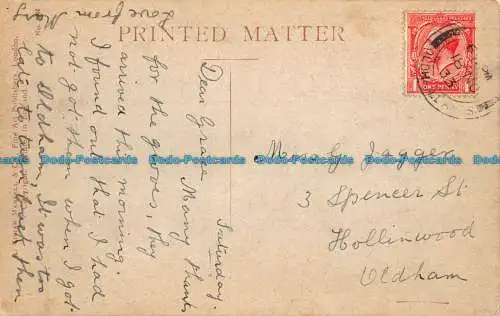 PRINTED MATTER
Saturday.
Dear Grace Many thanks
for the gloves, they
arrived this morning.
I found out that I had
not got them when I got
to Oldham, It was too
late to turn back then
Love from Mary
G Jagger
3 Spencer St
Hollinwood
Oldham
ONE PENNY
Dodo-Postcards Dodo-Postcards Dodo-Postcards Dodo-Postcards Dodo-Postcards